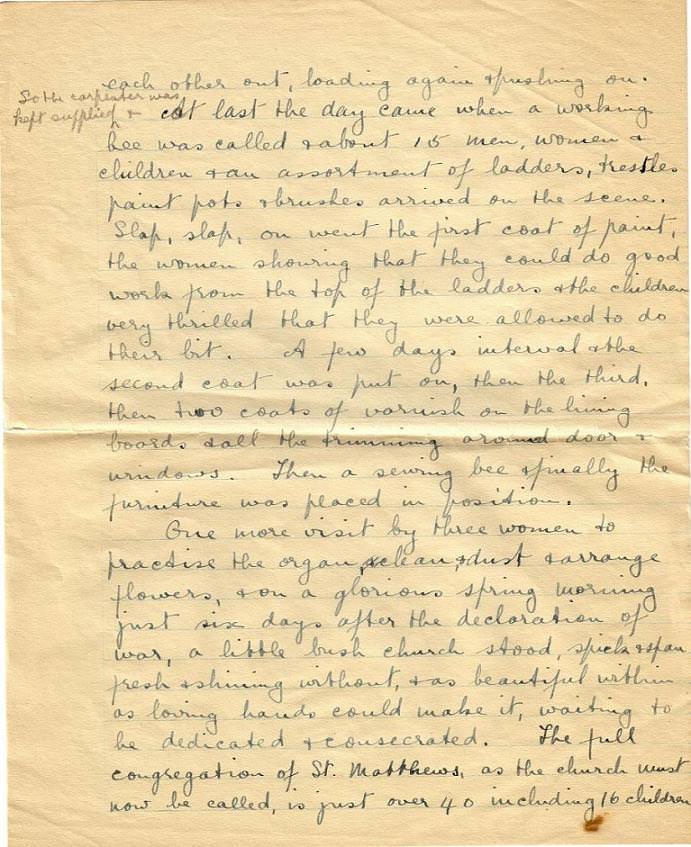 each other out, loading again & pushing on.
So the carpenter was
kept supplied & at last the day came when a working
bee was called & about 15 men, women &
children & an assortment of ladders, trestles
paint pots & brushes arrived on the scene.
Slap, slap, on went the first coat of paint,
the women showing that they could do good
work from the top of the ladders & the children
very thrilled that they were allowed to do
their bit. A few days interval & the
second coat was put on, then the third,
then two coats of varnish on the lining
boards & all the trimming around door &
windows. Then a sewing bee & finally the
furniture was placed in position.
One more visit by three women to
practise the organ, clean, & dust & arrange
flowers, & on a glorious spring morning
just six days after the declaration of
war, a little bush church stood, spick & span
fresh & shining without, & as beautiful within
as loving hands could make it, waiting to
be dedicated & consecrated. The full
congregation of St. Matthews, as the church must
now be called, is just over 40 including 16 children